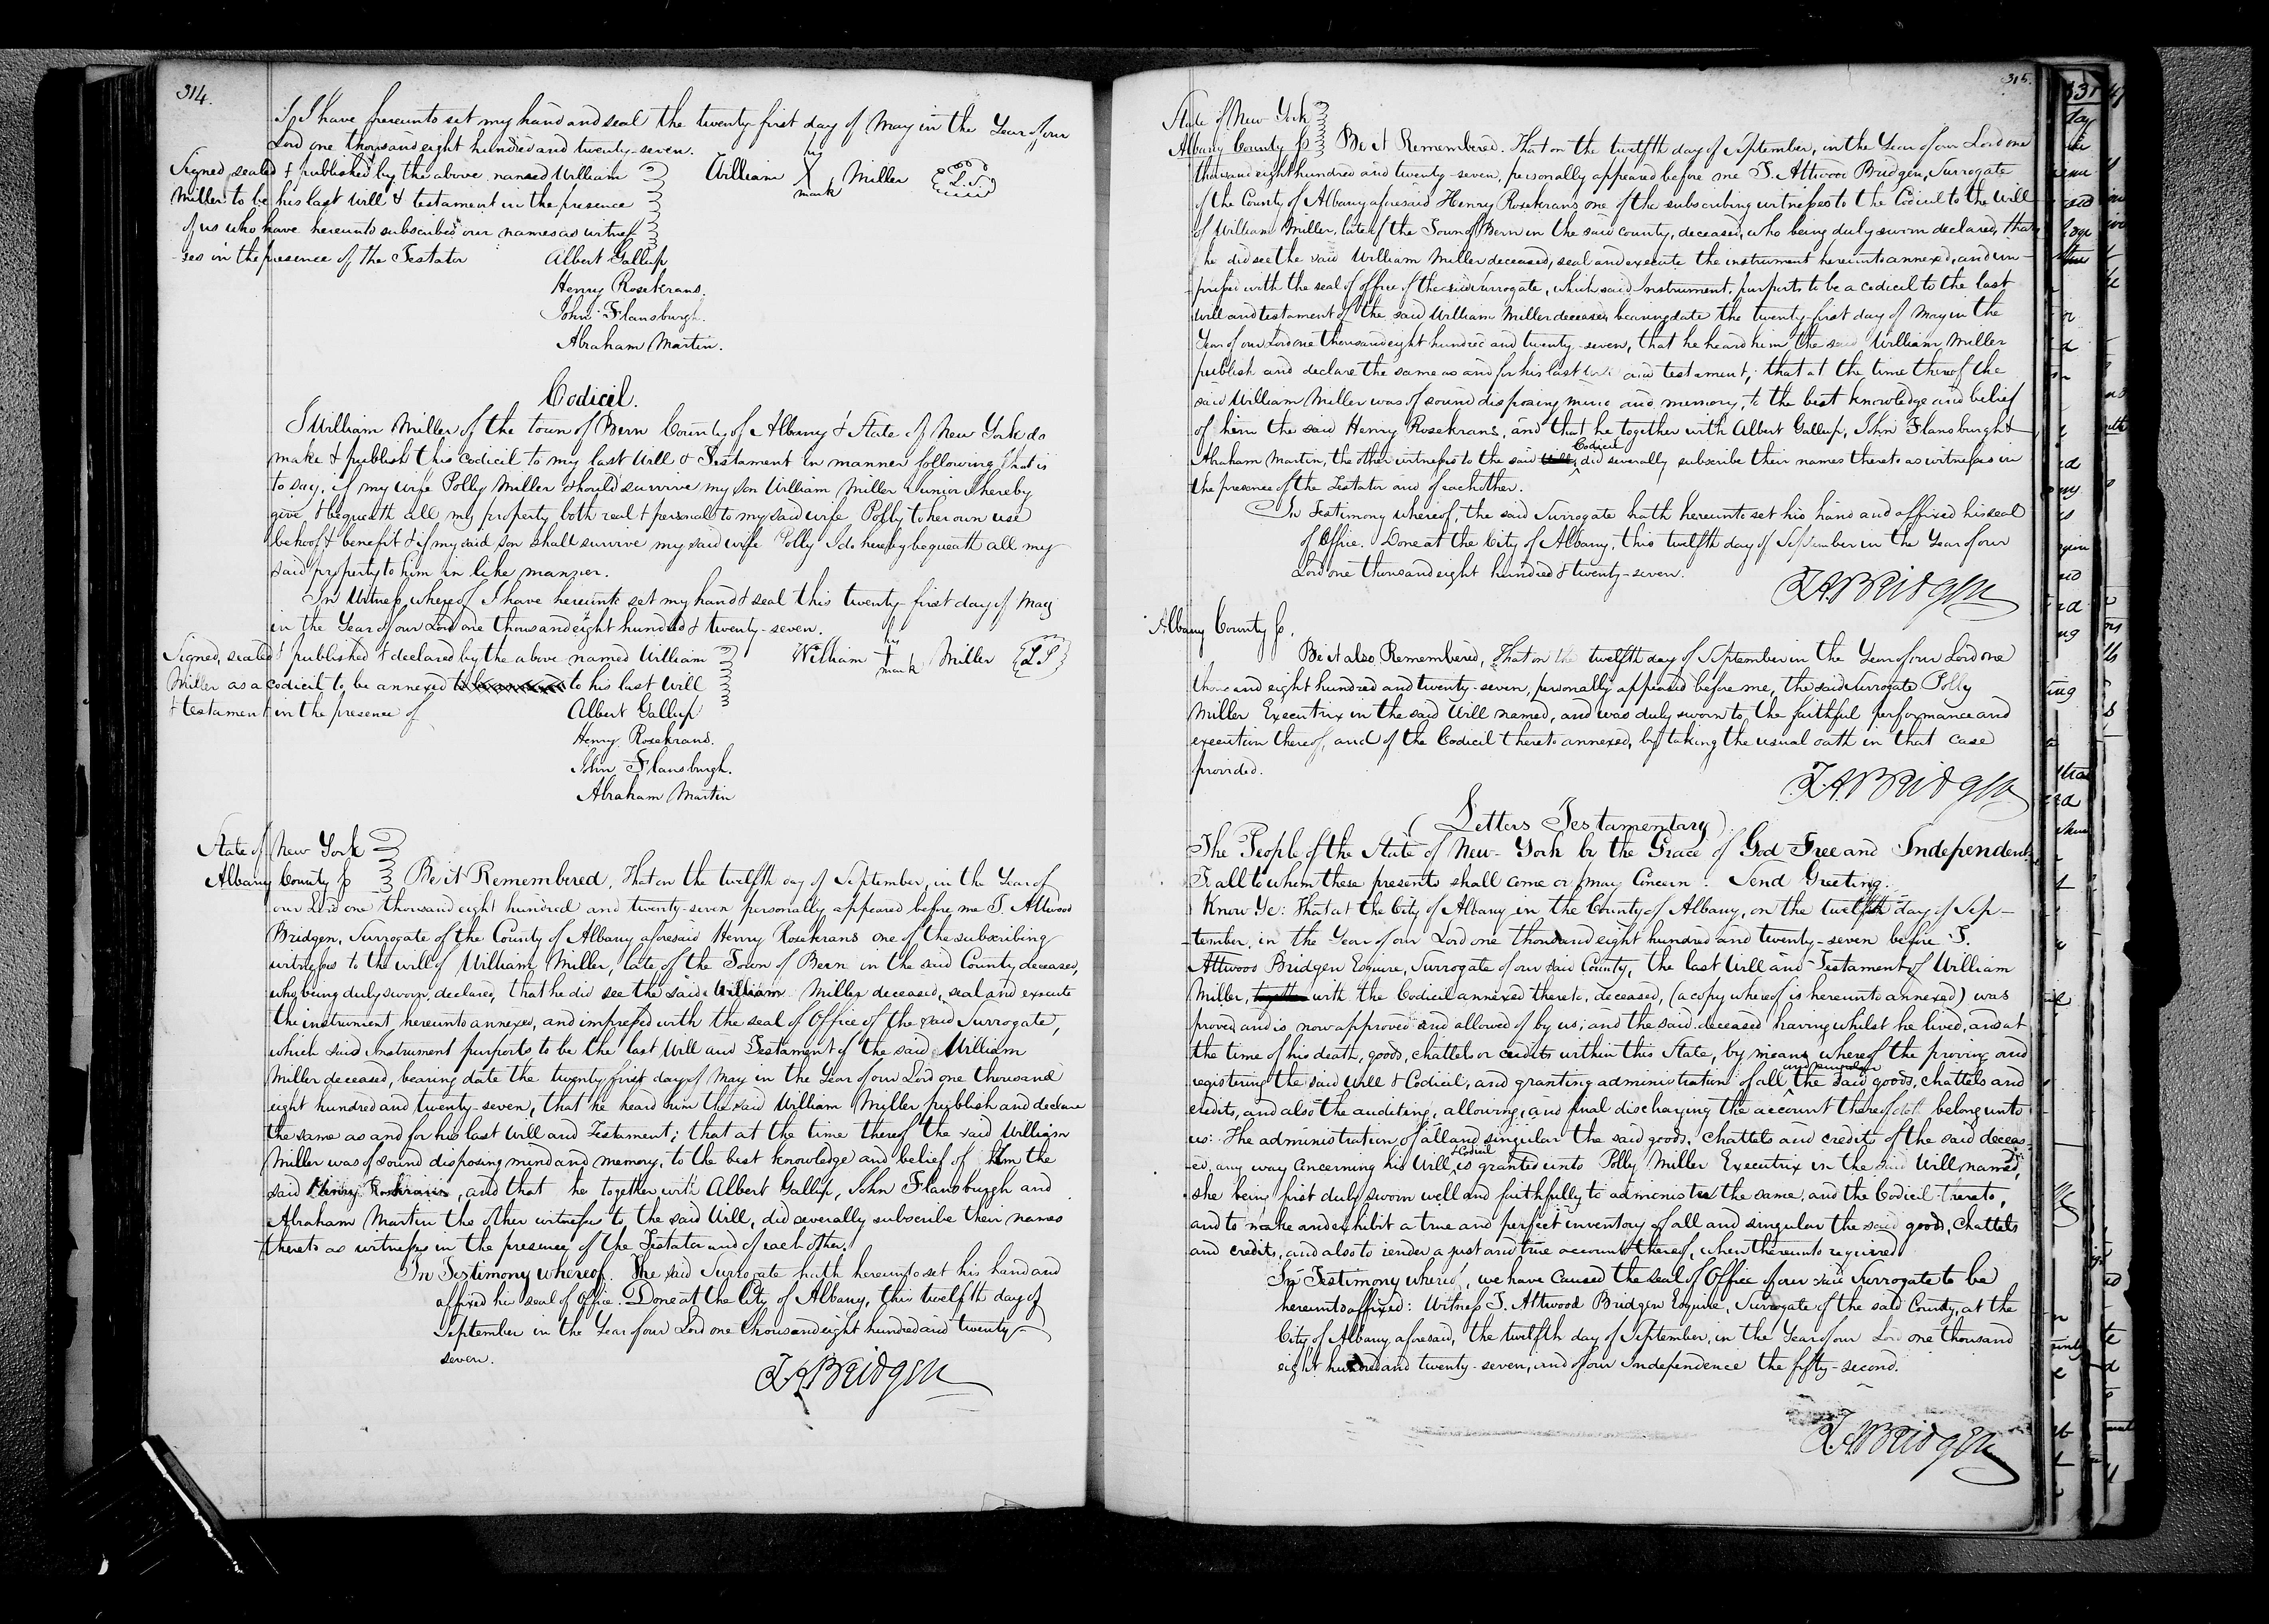 314.
I have hereunto set my hand and seal the twenty-first day of May in the Year of our
Lord one thousand eight hundred and twenty-seven.
Signed sealed & published by the above named William
Miller to be his last will & testament in the presence
of us who have hereunto subscribed our names as witnes
ses in the presence of the Testator
his
William X Miller L.S.
mark
Albert Gallup
Henry Rosekrans.
John Flansburgh.
Abraham Martin.
Codicil.
I William Miller of the town of Bern County of Albany & State of New York do
make & publish this codicil to my last Will & Testament in manner following that is
to say, if my wife Polly Miller should survive my son William Miller Junior I hereby
give & bequeath all my property both real & personal to my said wife Polly to her own use
behoof & benefit & if my said son shall survive my said wife Polly I do hereby bequeath all my
said property to him in like manner.
In Witness whereof I have hereunto set my hand & seal this twenty-first day of May
in the Year of our Lord one thousand eight hundred & twenty-seven.
Signed, sealed & published & declared by the above named William
Miller as a codicil to be annexed to be annexed to his last Will
& testament in the presence of
his
William + Miller L.S.
mark
Albert Gallup
Henry Rosekrans.
John Flansburgh.
Abraham Martin
State of New York
Albany County ss Be it Remembered, That on the twelfth day of September, in the Year of
our Lord one thousand eight hundred and twenty-seven personally appeared before me T. Attwood
Bridgen, Surrogate of the County of Albany aforesaid Henry Rosekrans one of the subscribing
witnesses to the will of William Miller, late of the Town of Bern in the said County deceased,
who, being duly sworn, declared, that he did see the said William Miller deceased, seal and execute
the instrument hereunto annexed, and impressed with the seal of Office of the said Surrogate,
which said instrument purports to be the last Will and Testament of the said William
Miller deceased, bearing date the twenty first day of May in the Year of our Lord one thousand
eight hundred and twenty-seven, that he heard him the said William Miller publish and declare
the same as and for his last Will and Testament; that at the time thereof the said William
Miller was of sound disposing mind and memory, to the best knowledge and belief of him the
said Henry Rosekrans, and that he together with Albert Gallup, John Flansburgh and
Abraham Martin the other witnesses to the said Will, did severally subscribe their names
thereto as witnesses in the presence of the Testator and of each other.
In Testimony whereof. The said Surrogate hath hereunto set his hand and
affixed his seal of office. Done at the City of Albany, this twelfth day of
September in the Year of our Lord one thousand eight hundred and twenty-
seven.
T.A. Bridgen
315.
State of New York
Albany County ss Be it Remembered. That on the twelfth day of September, in the Year of our Lord one
thousand eight hundred and twenty-seven, personally appeared before me T. Attwood Bridgen, Surrogate
of the County of Albany aforesaid Henry Rosekrans one of the subscribing witnesses to the Codicil to the Will
of William Miller, late of the Town of Bern in the said county, deceased, who being duly sworn declared, that
he did see the said William Miller deceased, seal and execute the instrument hereunto annexed, and im-
pressed with the seal of office of the said Surrogate, which said Instrument, purports to be a codicil to the last
Will and testament of the said William Miller deceased, bearing date the twenty-first day of May in the
Year of our Lord one thousand eight hundred and twenty-seven, that he heard him the said William Miller
publish and declare the same as and for his last will and testament; that at the time thereof the
said William Miller was of sound disposing mind and memory, to the best knowledge and belief
of him the said Henry Rosekrans, and that he together with Albert Gallup, John Flansburgh &
Abraham Martin, the other witnesses to the said Will, Codicil did severally subscribe their names thereto as witnesses in
the presence of the Testator and of each other.
In Testimony whereof, the said Surrogate hath hereunto set his hand and affixed his seal
of Office. Done at the City of Albany, this twelfth day of September in the Year of our
Lord one thousand eight hundred & twenty-seven.
T.A. Bridgen
Albany County ss.
Be it also Remembered, That on the twelfth day of September in the Year of our Lord one
thousand eight hundred and twenty-seven, personally appeared before me, the said Surrogate Polly
Miller Executrix in the said Will named, and was duly sworn to the faithful performance and
execution thereof, and of the Codicil thereto annexed, by taking the usual oath in that case
provided.
T.A. Bridgen
(Letters Testamentary)
The People of the State of New-York by the Grace of God Free and Independent
To all to whom these presents shall come or may Concern: Send Greeting.
Know Ye: That at the City of Albany in the County of Albany, on the twelfth day of Sep-
tember, in the Year of our Lord one thousand eight hundred and twenty-seven before T.
Attwood Bridgen Esquire, Surrogate of our said County, the last Will and Testament of William
Miller, together with the Codicil annexed thereto, deceased, (a copy whereof is hereunto annexed) was
proved and is now approved and allowed of by us; and the said deceased having whilst he lived, and at
the time of his death, goods, chattels or credits within this State, by means whereof the proving and
registering the said Will & Codicil, and granting administration of all and singular the said goods, chattels and
credits, and also the auditing, allowing, and final discharging the account thereof doth belong unto
us: The administration of all and singular the said goods, chattels and credits of the said deceas-
ed, any way concerning his Will & Codicil is granted unto Polly Miller Executrix in the said Will named,
she being first duly sworn well and faithfully to administer the same, and the Codicil thereto,
and to make and exhibit a true and perfect inventory of all and singular the said goods, chattels
and credits, and also to render a just and true account thereof, when thereunto required.
In Testimony whereof, we have caused the seal of Office of our said Surrogate to be
hereunto affixed: Witness T. Attwood Bridgen Esquire, Surrogate of the said County, at the
City of Albany aforesaid, the twelfth day of September, in the Year of our Lord one thousand
eight hundred and twenty-seven, and of our Independence the fifty-second.
T.A. Bridgen